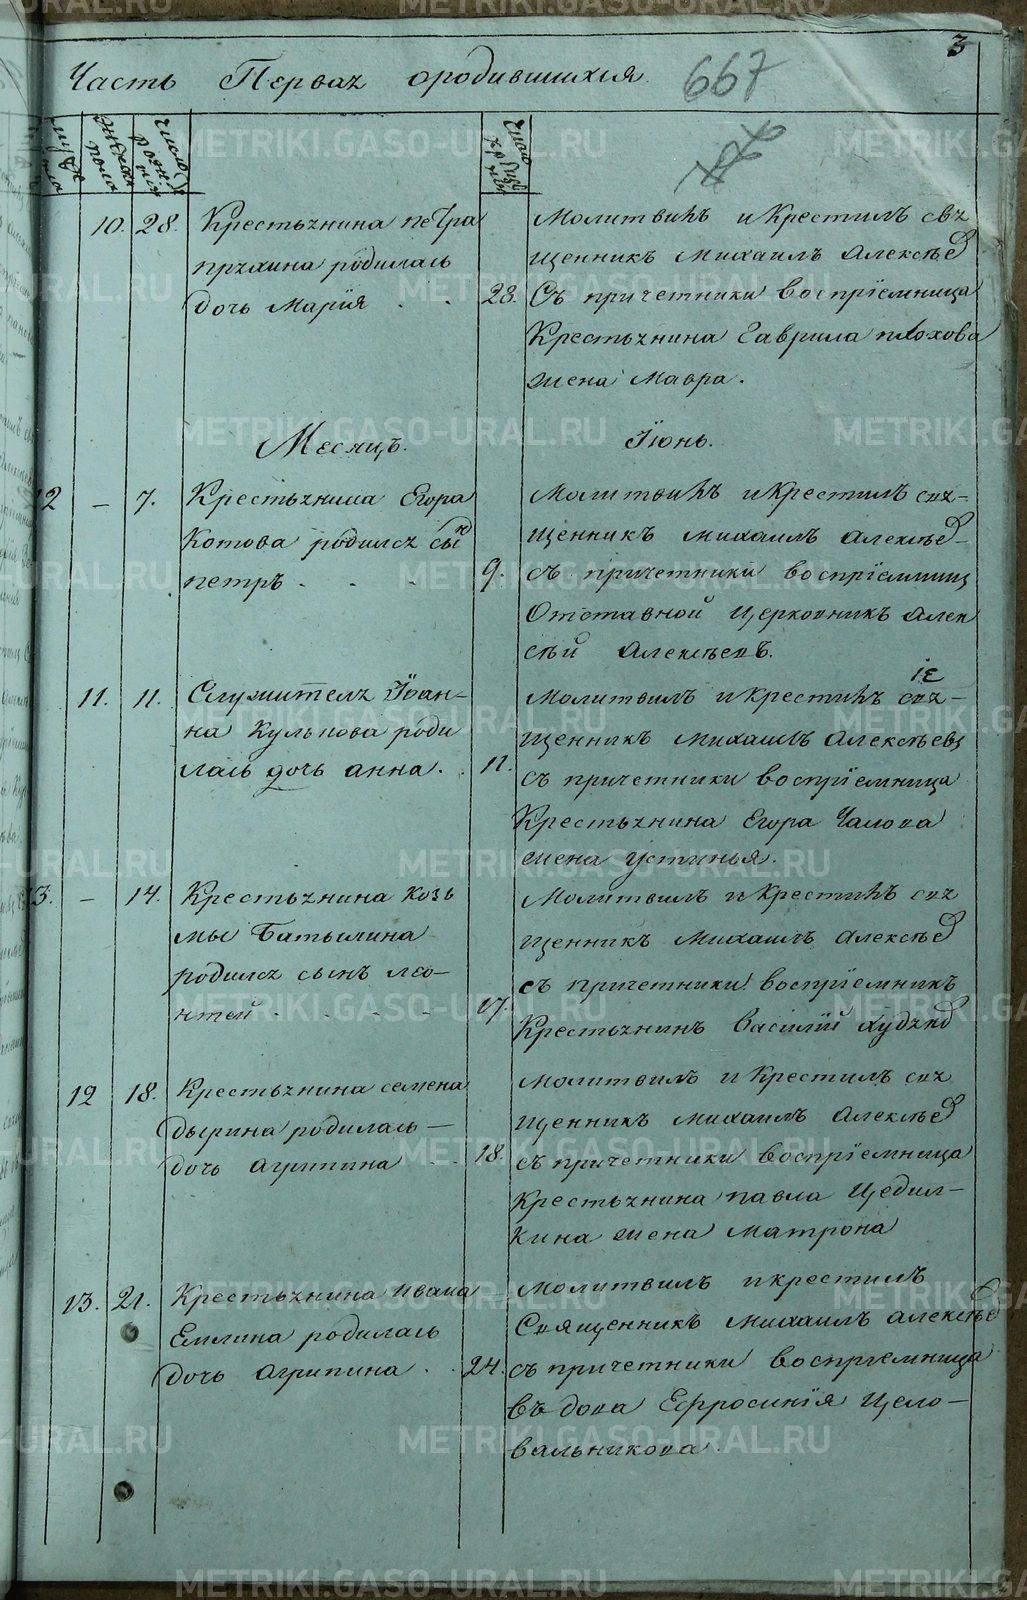 3
Часть Первая ородившихся
667
муже пола
женска пола
число рожд
число крещ
10. 28. Крестьянина петра
пряхина родилась
дочь Марїя
Молитвилъ и Крестилъ свя
щенникъ Михаилъ Алексѣев
28. Съ причетники воспрїемница
Крестьянина Гаврила плохова
жена мавра.
Месяцъ. Їюнь.
12 — 7. Крестьянина Егора
Котова родился сынъ
петръ
Молитвилъ и Крестилъ свя-
щенникъ Михаилъ Алексѣев
9. съ причетники воспрїемникъ
Отставной Церковникъ Алек
сѣй Алексѣевъ.
11. 11. Служителя Їоан-
на Кульпова роди
лась дочь анна.
Молитвилъ и крестилъ свя-
щенникъ Михаилъ Алексѣевъ
11. съ причетники воспрїемница
Крестьянина Егора Чалова
жена устинья.
13. — 14. Крестьянина козь
мы Батылина
родился сынъ лео-
нтей
Молитвилъ и Крестилъ свя
щенникъ Михаилъ Алексѣев
съ причетники воспрїемникъ
17. Крестьянинъ Василїй Худяков
12 18. Крестьянина семена
дырина родилась —
дочь агрипина
Молитвилъ и Крестилъ свя
щенникъ Михаилъ Алексѣев
18. съ причетники воспрїемница
Крестьянина павла Цедил-
кина жена матрона
13. 21. Крестьянина ивана
Емлина родилась
дочь агрипина
Молитвилъ и крестилъ
Священникъ Михаилъ алексѣев
24. съ причетники воспрїемница
въдова Ефросинїя Цело-
вальникова.
METRIKI.GASO-URAL.RU